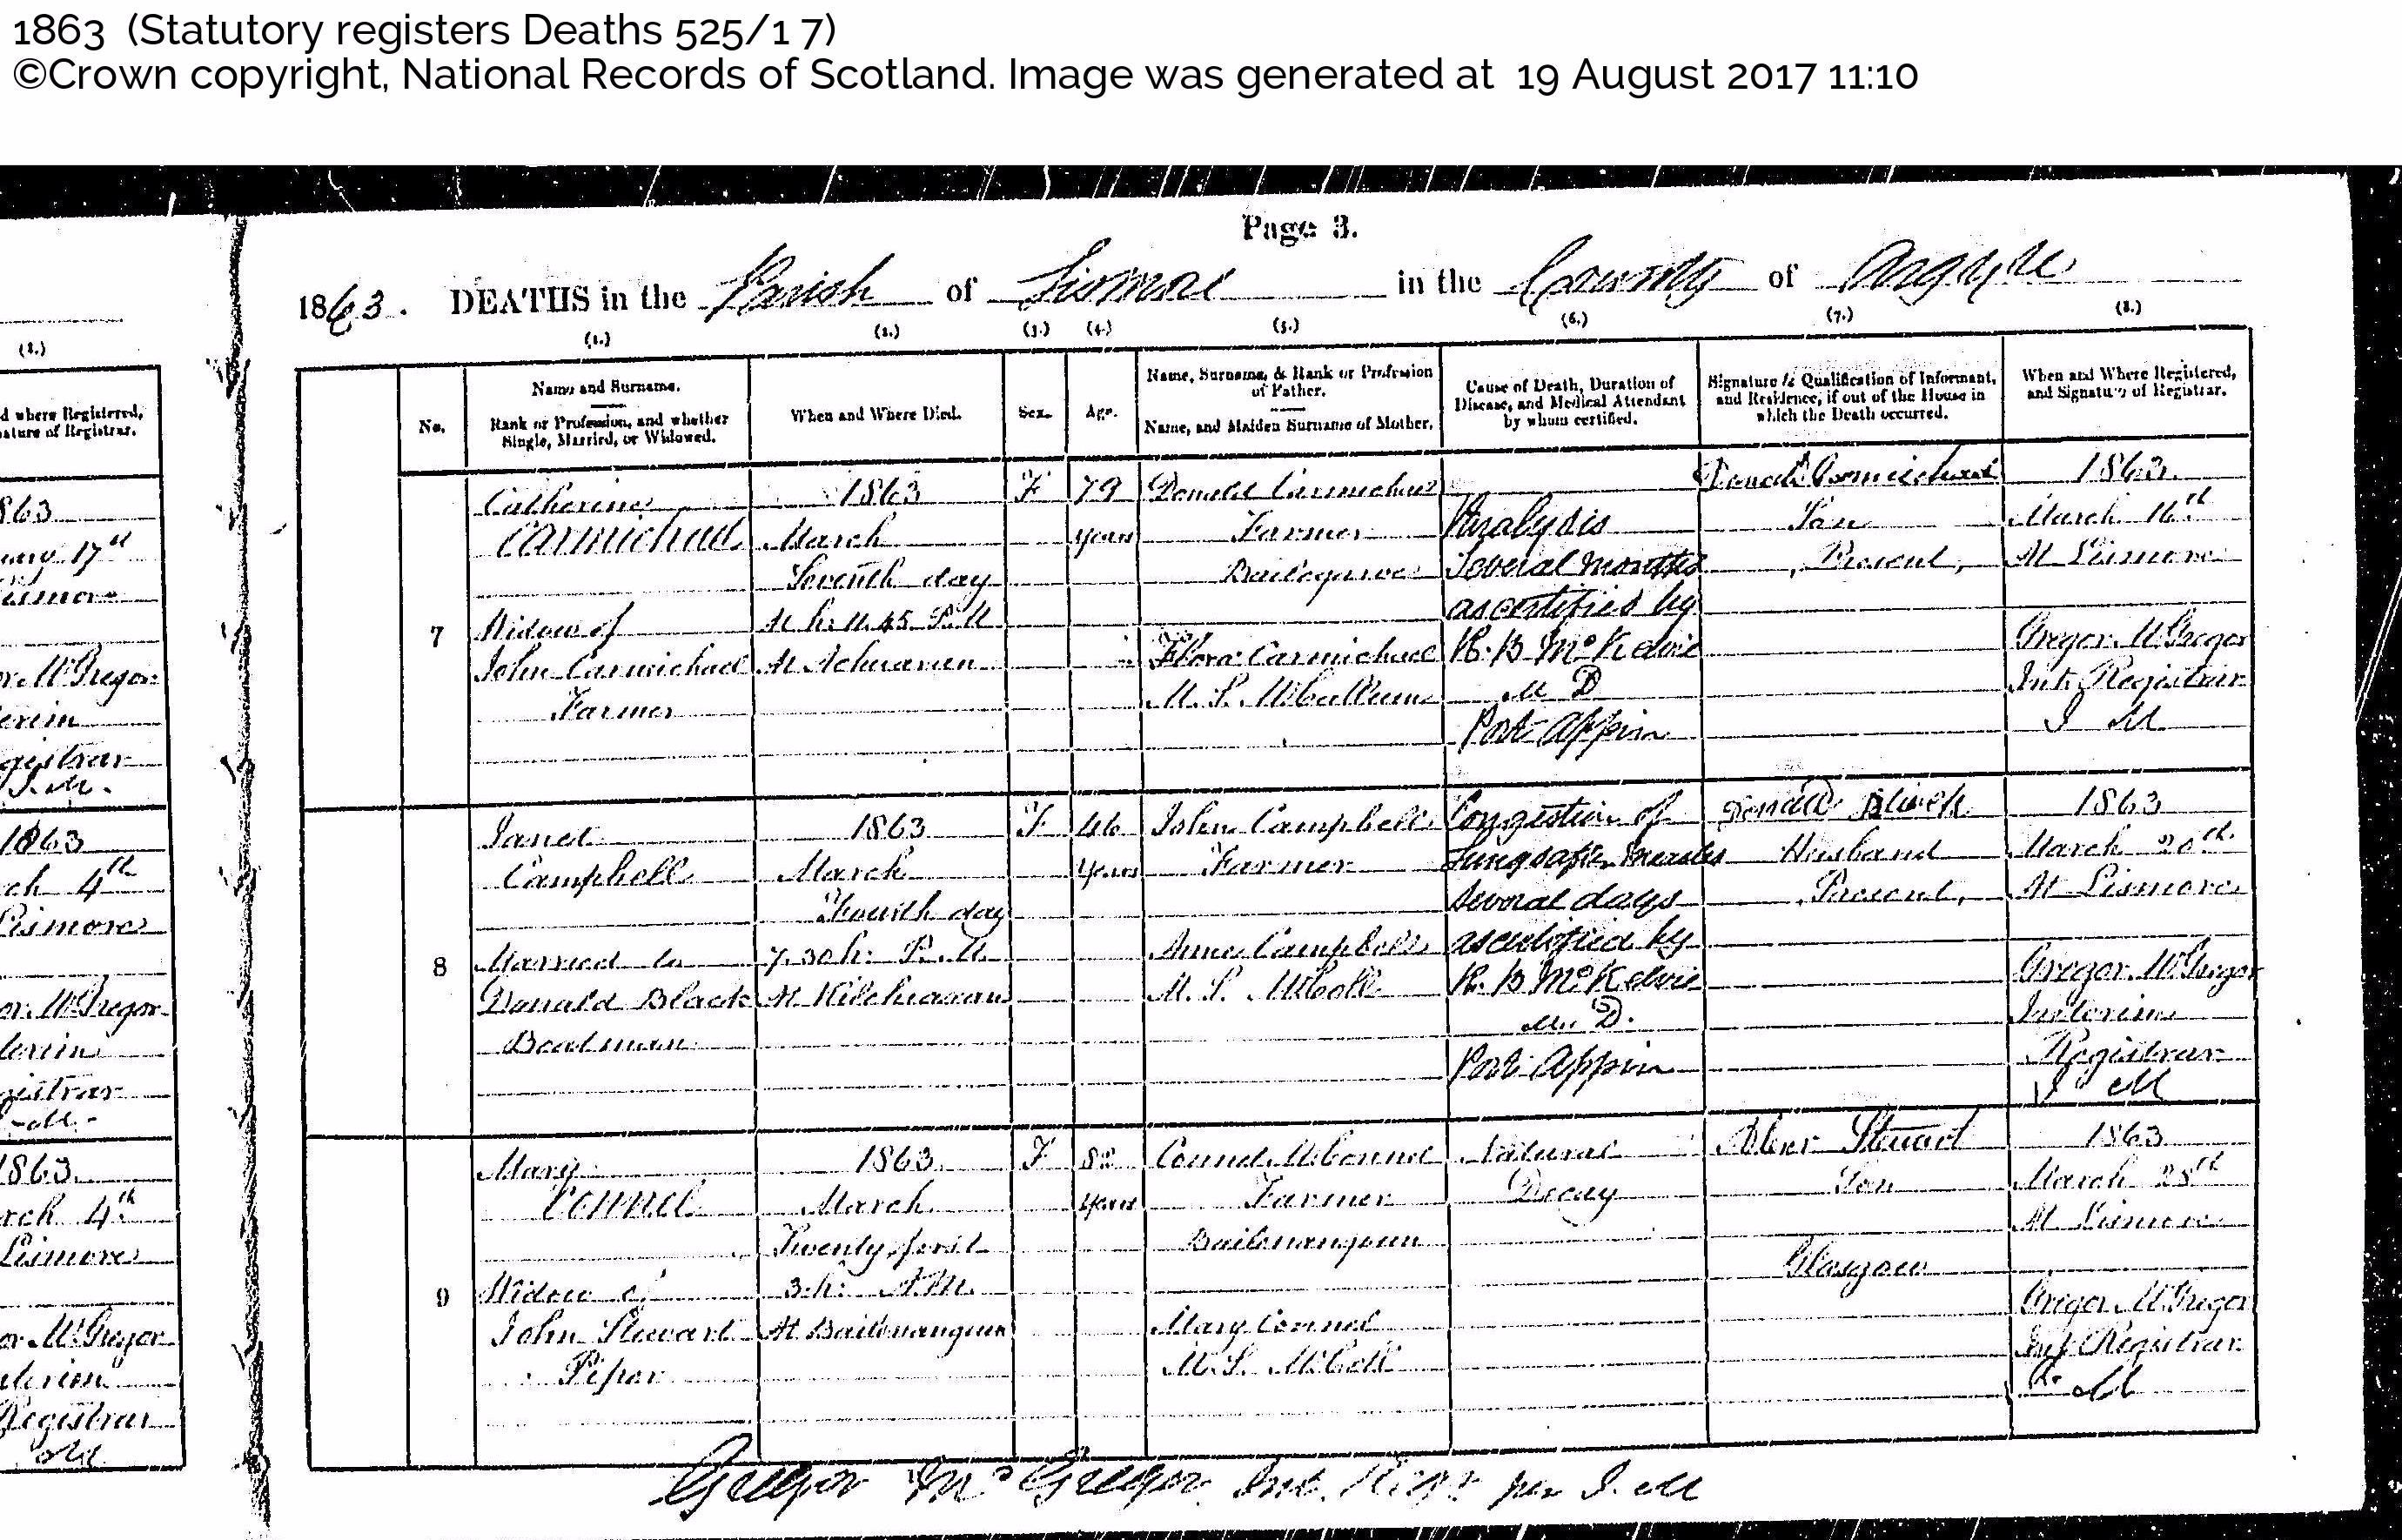 1863 (Statutory registers Deaths 525/1 7)
©Crown copyright, National Records of Scotland. Image was generated at 19 August 2017 11:10
Page 3.
1863. DEATHS in the Parish of Lismore in the County of Argyle
(1.) (2.) (3.) (4.) (5.) (6.) (7.) (8.)
No.
Name and Surname.
Rank or Profession, and whether
Single, Married, or Widowed.
When and Where Died.
Sex.
Age.
Name, Surname, & Rank or Profession
of Father.
Name, and Maiden Surname of Mother.
Cause of Death, Duration of
Disease, and Medical Attendant
by whom certified.
Signature & Qualification of Informant,
and Residence, if out of the House in
which the Death occurred.
When and Where Registered,
and Signature of Registrar.
7
Catherine
Carmichael
Widow of
John Carmichael
Farmer
1863
March
Seventh day
11.45 P.M
At Achnaran
F
79
years
Donald Carmichael
Farmer
Flora Carmichael
M.S. McCallum
Paralysis
Several months
as certified by
R. B McKelvie
M D
Port Appin
Carmichael
Son
Present,
1863
March 16th
At Lismore
Gregor McGregor
Int. Registrar
J M
8
Janet
Campbell
Married to
Donald Black
Boatman
1863
March
Fourth day
7.30 h. P.M.
At Kilcheran
F
46
years
John Campbell
Farmer
Anne Campbell
M.S. McColl
Congestion of
Lungs after measles
Several days
as certified by
R. B McKelvie
M. D.
Port Appin
Donald Black
Husband
Present,
1863
March 20th
At Lismore
Gregor McGregor
Interim
Registrar
J M
9
Mary
Connel
Widow of
John Stewart
Piper
1863
March
Twenty first
3 h. A.M.
At
F
82
years
Farmer
Mary Connel
M.S. McColl
Natural
Decay
Alexr Stewart
Son
Glasgow
1863
March 28th
At Lismore
Gregor McGregor
Int Registrar
Gregor McGregor Int. Regr per J. M